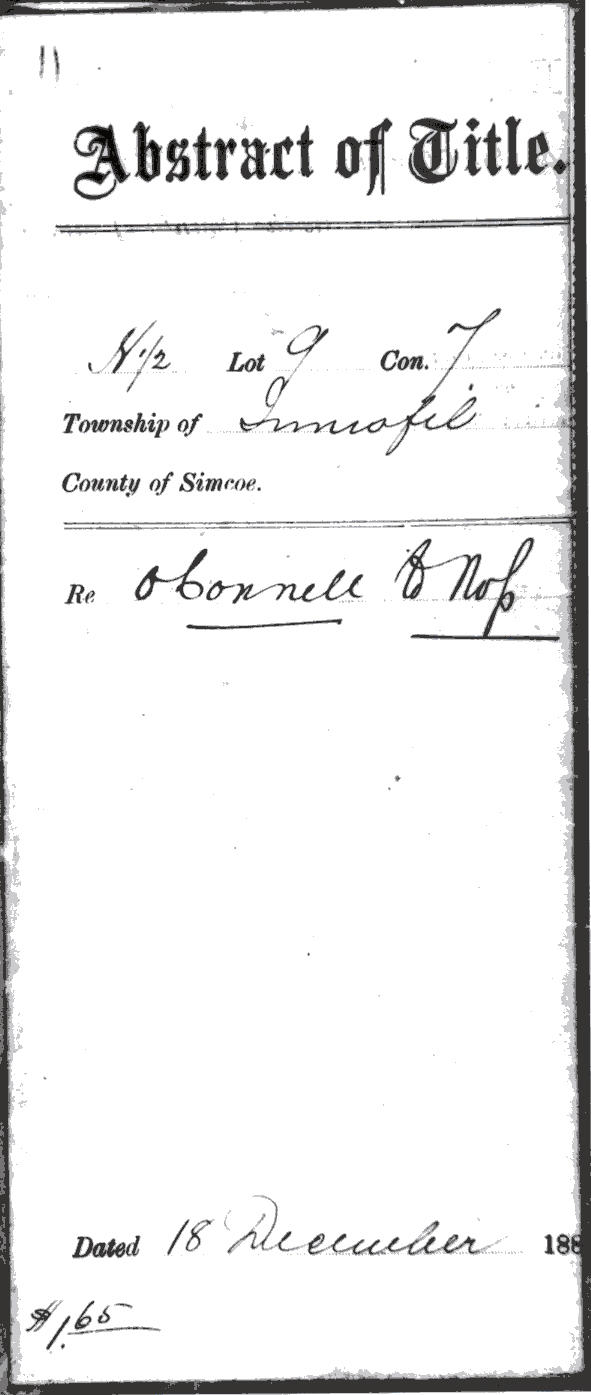 11
Abstract of Title.
N 1/2 Lot 9 Con. 7
Township of Innisfil
County of Simcoe.
Re O'Connell &
Dated 18 December 188
$1.65